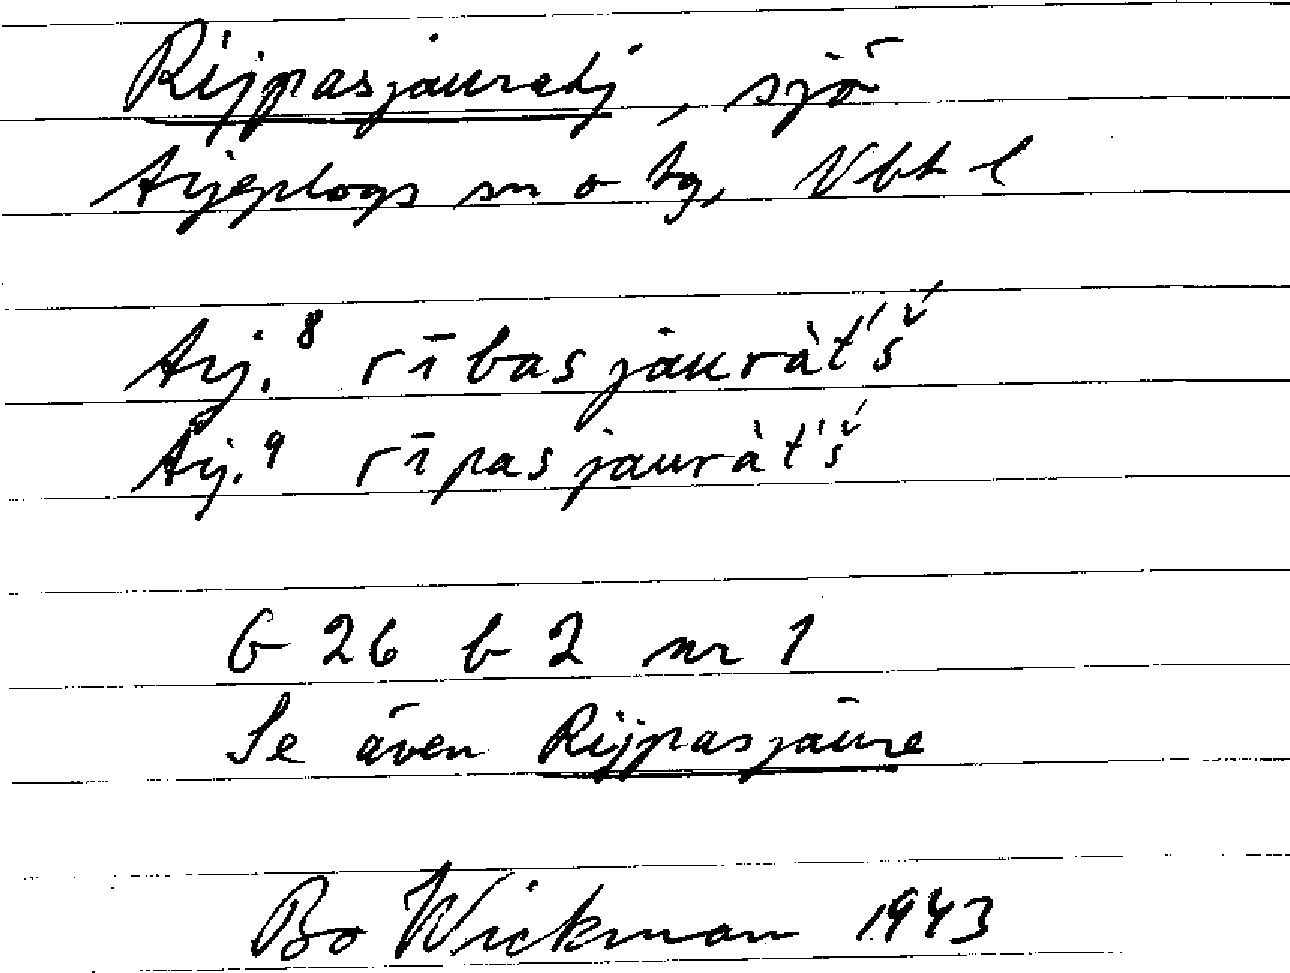 Rijpasjauratj, sjö
Arjeplogs sn o tg, Vbt l
Arj.⁸ rībasjauràt́'š́
Arj.⁹ rīpasjauràt́'š́
G 26 b 2 nr 1
Se även Rijpasjaure
Bo Wickman 1943